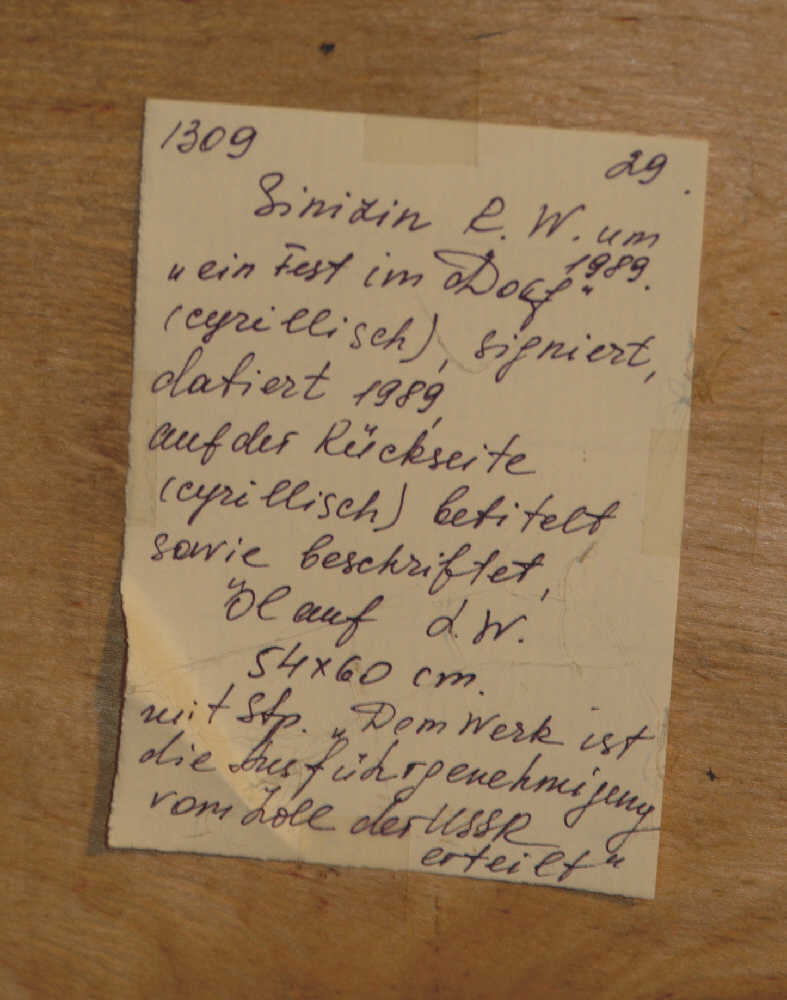 1309 29.
Sinizin R. W. um
1989.
„ein Fest im Dorf“
(cyrillisch), signiert,
datiert 1989,
auf der Rückseite
(cyrillisch) betitelt
sowie beschriftet,
Öl auf L.W.
54x60 cm.
mit Stp. „Dem Werk ist
die Ausführgenehmigung
vom Zoll der USSR
erteilt“